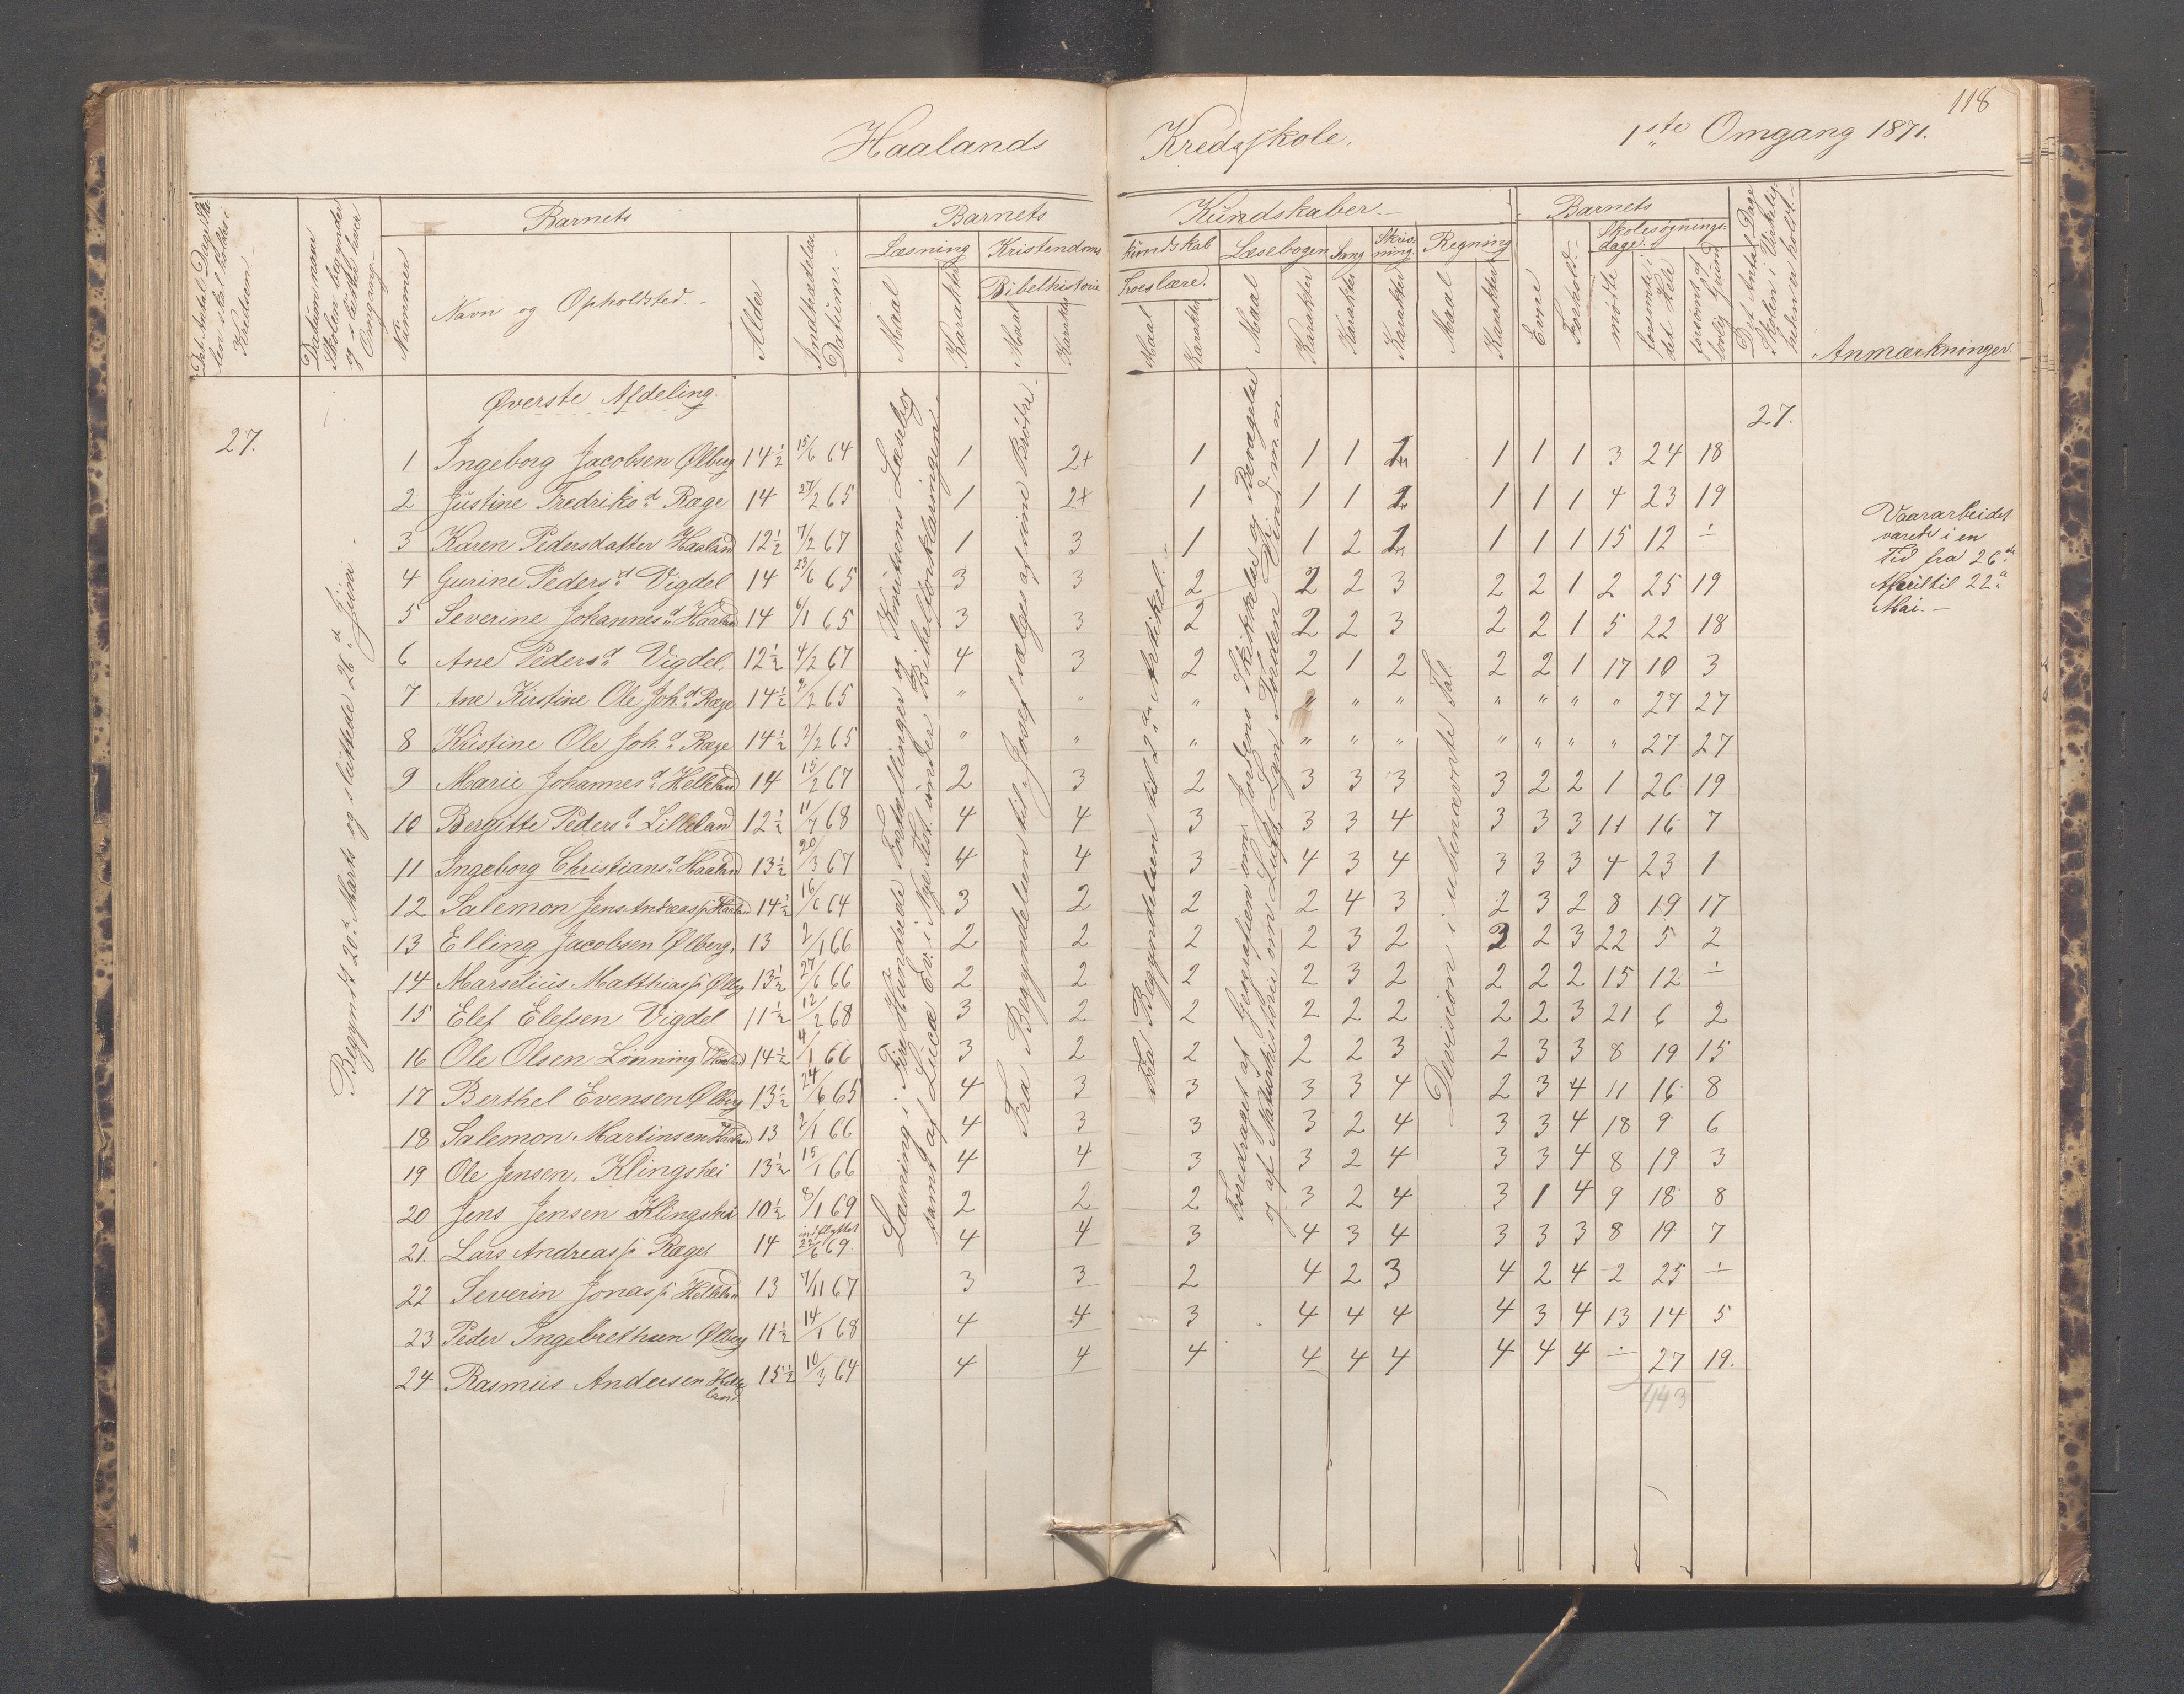 118
Haalands Kredsskole. 1ste Omgang 1871.
Det Antal Dage Skolen skal holdes i Kredsen.
Datum naar Skolen begynder og sluttet hver Omgang.
Nummer
Barnets
Navn og Opholdsted
Alder
Indtrædelses Datum.
Barnets Kundskaber.
Læsning
Maal
Karakter
Kristendoms kundskab
Bibelhistorie
Maal
Karakter
Troeslære.
Maal
Karakter
Læsebogen
Maal
Karakter
Sang
Karakter
Skrivning.
Karakter
Regning
Maal
Karakter
Barnets
Evne
Forhold
Skolesøgningsdage.
mødte
forsømte i det Hele
forsømt af lovlig Grund
Det Antal Dage Skolen i Virkeligheden er holdt
Anmærkninger
Øverste Afdeling.
27.
27.
Begyndt 20de Marts og sluttede 26de Juni.
Læsning i Fire Hundrede Fortællinger og Knutsens Læsebog
samt af Lucæ Ev. i Nye Test. under Bibelforklaringen.
Fra Begyndelsen til Josef sælges af sine Brødre.
Fra Begyndelsen til 2den Artikel.
Foredraget af Geografien om Jordens Skikkelse og Bevægelse
og af Naturhistorie om Luft, Lyn, Torden Vind m. m.
Devision i ubenævnte Tal.
Vaararbeidet
varede i en
Tid fra 26de
April til 22de
Mai.
1 Ingeborg Jacobsen Ølberg 14½ 15/6 64 1 2+ 1 1 1 2 1 1 1 3 24 18
2 Justine Fredriksd Ræge 14 27/2 65 1 2+ 1 1 1 2 1 1 1 4 23 19
3 Karen Pedersdatter Haaland 12½ 7/2 67 1 3 1 1 2 2 1 1 1 15 12 ÷
4 Gurine Pedersd Vigdel 14 23/6 65 3 3 2 2 2 3 2 2 1 2 25 19
5 Severine Johannesd Haaland 14 6/1 65 3 3 2 2 2 3 2 2 1 5 22 18
6 Ane Pedersd Vigdel 12½ 4/2 67 4 3 2 2 1 2 2 2 1 17 10 3
7 Ane Kirstine Ole Joh.d Ræge 14½ 2/2 65 " " " " " " " " " " 27 27
8 Kristine Ole Joh.d Ræge 14½ 2/2 65 " " " " " " " " " " 27 27
9 Marie Johannesd Helleland 14 15/2 67 2 3 2 3 3 3 3 2 2 1 26 19
10 Bergitte Pedersd Lilleland 12½ 11/7 68 4 4 3 3 3 4 3 3 3 11 16 7
11 Ingeborg Christiansd Haaland 13½ 20/3 67 4 4 3 4 3 4 3 3 3 4 23 1
12 Salemon Jens Andreass. Haaland 14½ 16/6 64 3 2 2 2 4 3 2 3 2 8 19 17
13 Elling Jacobsen Ølberg. 13 2/1 66 2 2 2 2 3 2 2 2 3 22 5 2
14 Marselius Matthiass. Ølberg 13½ 27/6 66 2 2 2 2 3 2 2 2 2 15 12 ÷
15 Elef Elefsen Vigdel 11½ 12/2 68 3 2 2 2 2 2 2 2 3 21 6 2
16 Ole Olsen Lønning Haaland 14½ 4/1 66 3 2 2 2 2 3 2 3 3 8 19 15
17 Berthel Evensen Ølberg 13½ 24/6 65 4 3 3 3 3 4 2 3 4 11 16 8
18 Salemon Martinsen Haaland 13 2/1 66 4 3 3 3 2 4 3 3 4 18 9 6
19 Ole Jensen. Klingshei 13½ 15/1 66 4 4 3 3 2 4 3 3 4 8 19 3
20 Jens Jensen Klingshei 10½ 8/1 69 2 2 2 3 2 4 3 1 4 9 18 8
21. Lars Andreass. Ræge 14 indflyttet 22/6 69 4 4 3 4 3 4 3 3 3 8 19 7
22 Severin Jonass. Helleland 13 7/11 67 3 3 2 4 2 3 4 2 4 2 25 ÷
23 Peder Ingebrethsen Ølberg 11½ 14/1 68 4 4 3 4 4 4 4 3 4 13 14 5
24 Rasmus Andersen Helleland 15½ 10/3 64 4 4 4 4 4 4 4 4 4 ÷ 27 19.
443